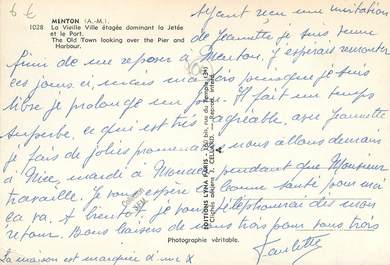 6 €
MENTON (A.-M.)
1028 La Vieille Ville étagée dominant la Jetée
et le Port.
The Old Town looking over the Pier and
Harbour.
Ayant reçu une invitation
de Jeannette je suis venue
finir de me reposer à Menton. J'espérais remonter
ces jours ci, mais puisque je suis
libre je prolonge un peu. Il fait un temps
superbe, ce qui est très agréable, avec Jeannette
je fais de jolies promenades nous allons demain
à Nice, mardi à Monaco pendant que Monsieur
travaille. Je vous espère bonne santé pour moi
ça va. A bientôt, je vous téléphonerai dès mon
retour. Bons baisers de nous trois pour vous trois
Paulette
La maison est marquée d'une X
Photographie véritable.
EDITIONS LYNA PARIS - 26, bis, rue du Temple (3e)
Clichés aériens J. CELLARD. — Reprod. interd.